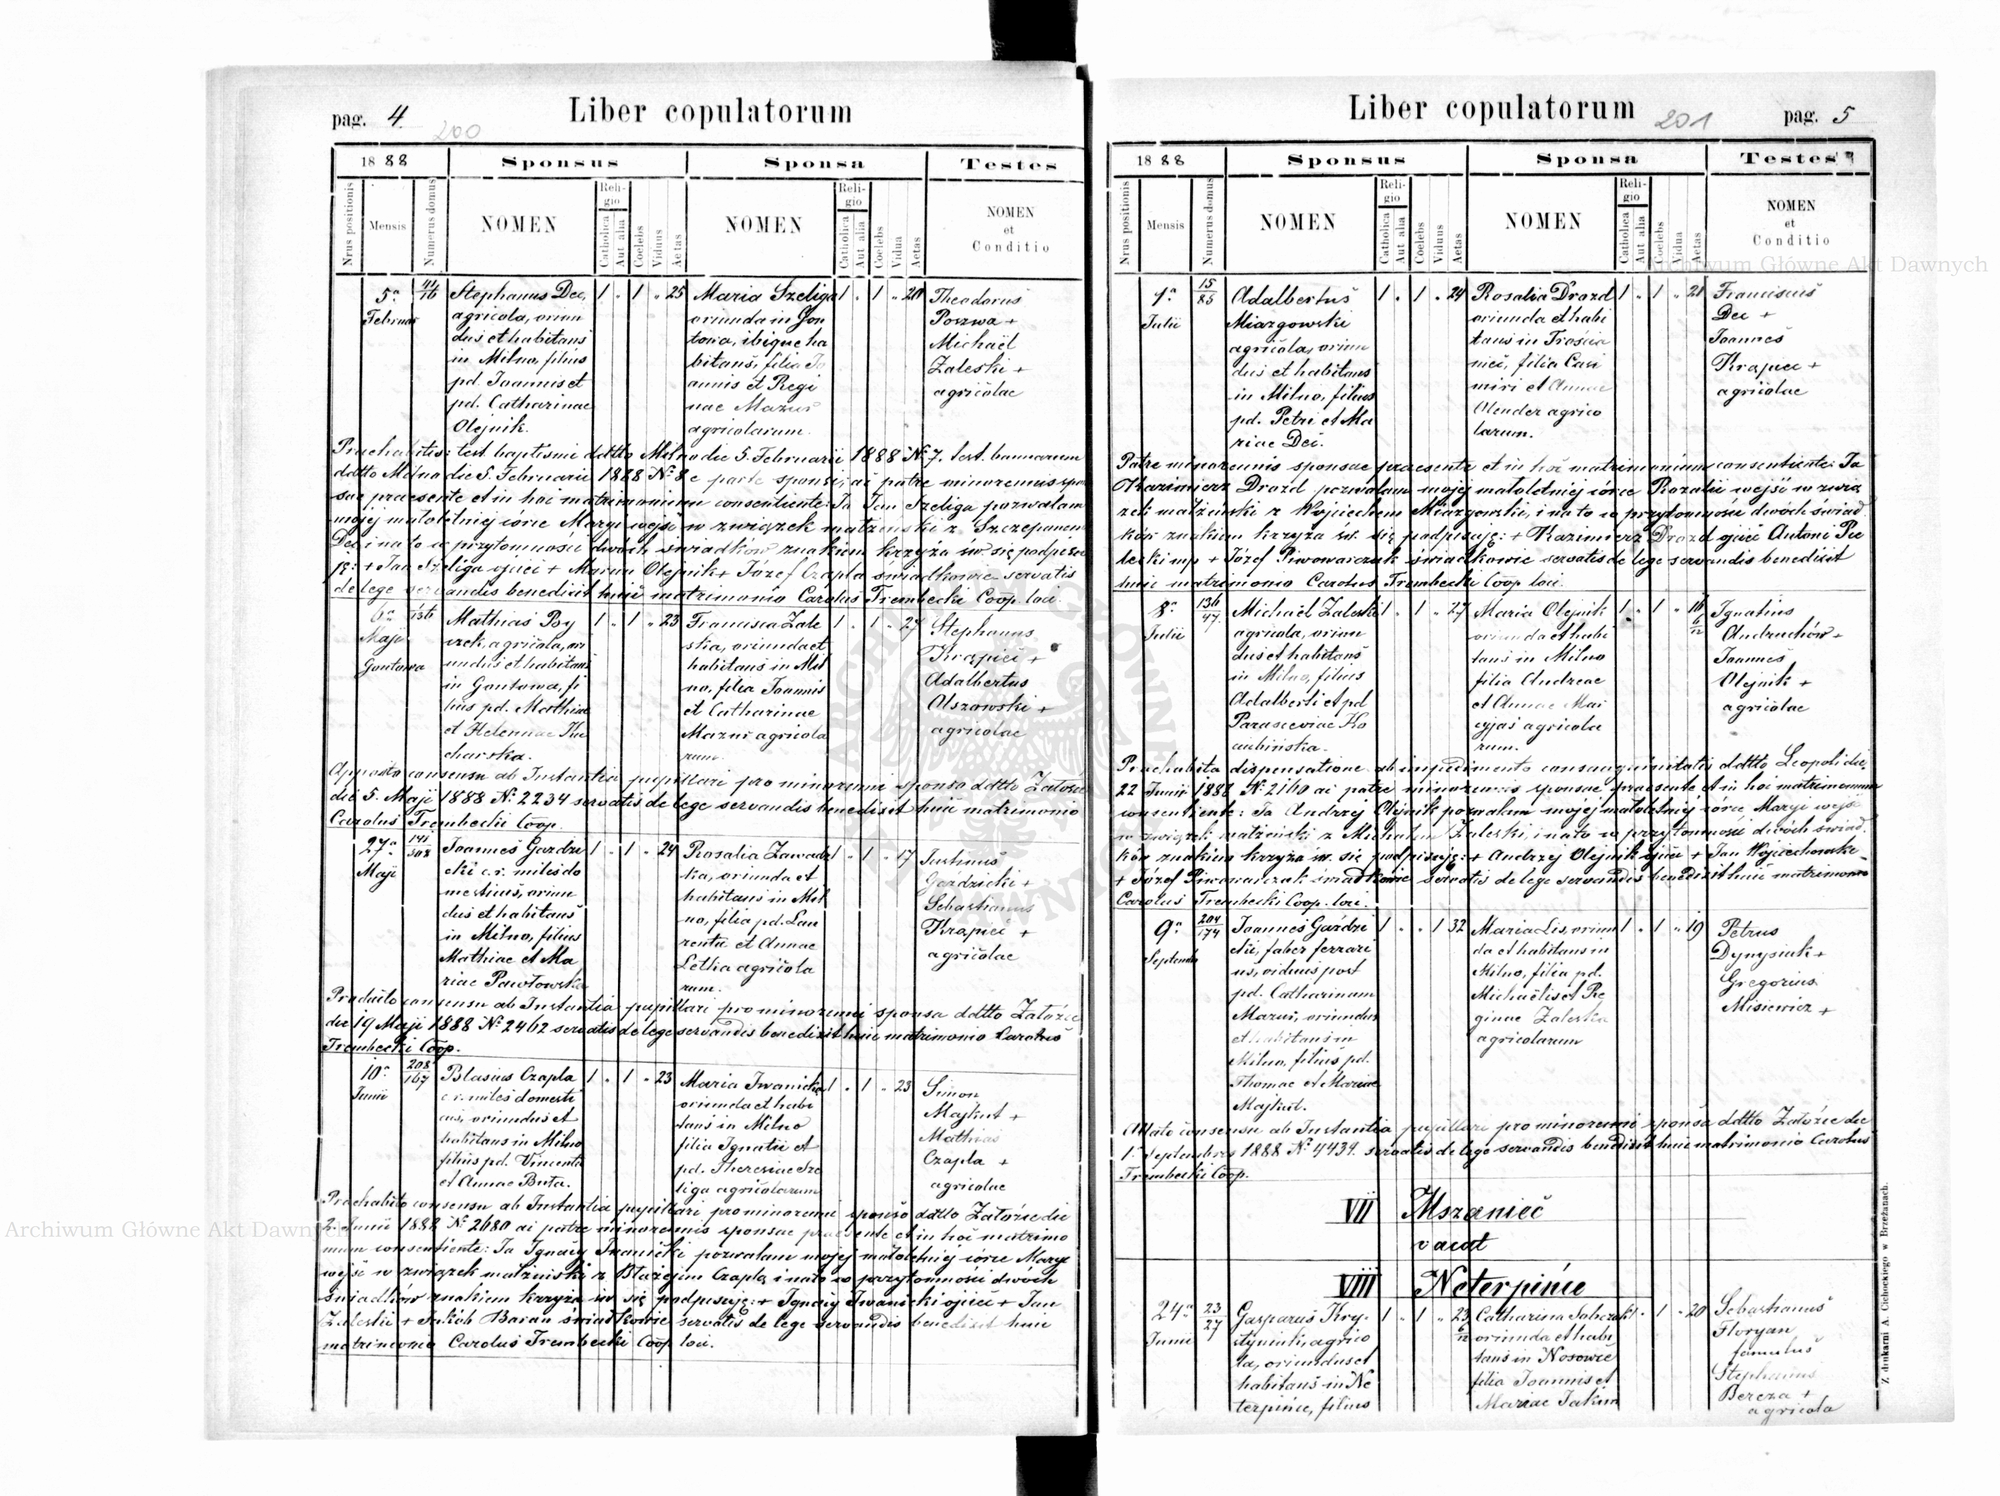 pag. 4
200
Liber copulatorum
1888
Sponsus
Sponsa
Testes
Nrus positionis
Mensis
Numerus domus
NOMEN
Religio
Catholica
Aut alia
Coelebs
Viduus
Aetas
NOMEN
Religio
Catholica
Aut alia
Coelebs
Vidua
Aetas
NOMEN
et
Conditio
5a
Februar
44/16
Stephanus Dec,
agricola, oriun
dus et habitans
in Milno, filius
pd. Joannis et
pd. Catharinae
Olejnik.
1 " 1 " 25
Maria Szeliga
oriunda in Gon
towa, ibique ha
bitans, filia Jo
annis et Regi
nae Mazur
agricolarum.
1 " 1 " 20
Theodorus
Poszwa +
Michaël
Zaleski +
agricolae
Praehabitis: test. baptismi ddtto Milno die 5. Februarii 1888 No 7. test. bannorum
ddtto Milno die 5. Februarii 1888 No 8 e parte sponsi, ac patre minorennis spon
sae praesente et in hoc matrimonium consentiente: Ja Jan Szeliga pozwalam
mojej małoletniej córce Maryi wejść w związek małżeński z Szczepanem
Dec i na to w przytomności dwóch świadków znakiem krzyża św. się podpisu
ję: + Jan Szeliga ojciec + Marcin Olejnik + Józef Czapla świadkowie servatis
de lege servandis benedixit huic matrimonio Carolus Trembecki Coop. loci.
6a
Maji
Gontowa
136
Mathias Boy
czek, agricola, ori
undus et habitans
in Gontowa, fi
lius pd. Mathiae
et Helennae Ku
charska.
1 " 1 " 23
Francisca Zale
ska, oriunda et
habitans in Mil
no, filia Joannis
et Catharinae
Mazur agricola
rum.
1 " 1 " 27
Stephanus
Krąpiec +
Adalbertus
Olszowski +
agricolae
Apposito consensu ab Instantia pupillari pro minorenni sponso ddtto Załoźce
die 5. Maji 1888 No 2234 servatis de lege servandis benedixit huic matrimonio
Carolus Trembecki Coop.
27a
Maji
141/308
Joannes Gazdzi
cki c.r. miles do
mesticus, oriun
dus et habitans
in Milno, filius
Mathiae et Ma
riae Pawłowska
1 " 1 " 24
Rosalia Zawadz
ka, oriunda et
habitans in Mil
no, filia pd. Lau
rentii et Annae
Letka agricola
rum.
1 " 1 " 17
Justinus
Gażdzicki +
Sebastianus
Krąpiec +
agricolae
Producto consensu ab Instantia pupillari pro minorenni sponsa ddtto Załoźce
die 19 Maji 1888 No 2462 servatis de lege servandis benedixit huic matrimonio Carolus
Trembecki Coop.
10a
Junii
208/167
Blasius Czapla
c.r. miles domesti
cus, oriundus et
habitans in Milno
filius pd. Vincenti
et Annae Buta.
1 " 1 " 23
Maria Iwanicka
oriunda et habi
tans in Milno
filia Ignatii et
pd. Theresiae Sze
liga agricolarum
1 " 1 " 23
Simon
Majkut +
Mathias
Czapla +
agricolae
Praehabito consensu ab Instantia pupillari pro minorenni sponso ddtto Załoźce die
2. Junii 1888 No 2680 ac patre minorennis sponsae praesente et in hoc matrimo
nium consentiente: Ja Ignacy Iwanicki pozwalam mojej małoletniej córce Maryi
wejść w związek małżeński z Błażejem Czaplą i na to w przytomności dwóch
świadków znakiem krzyża św. się podpisuję: + Ignacy Iwanicki ojciec + Jan
Zaleski + Jakób Baran świadkowie servatis de lege servandis benedixit huic
matrimonio Carolus Trembecki Coop. loci.
Liber copulatorum
201
pag. 5
1888
Sponsus
Sponsa
Testes
Nrus positionis
Mensis
Numerus domus
NOMEN
Religio
Catholica
Aut alia
Coelebs
Viduus
Aetas
NOMEN
Religio
Catholica
Aut alia
Coelebs
Vidua
Aetas
NOMEN
et
Conditio
1a
Julii
15/85
Adalbertus
Miazgowski
agricola, oriun
dus et habitans
in Milno, filius
pd. Petri et Ma
riae Dec.
1 " 1 " 24
Rosalia Drozd
oriunda et habi
tans in Trościa
niec, filia Casi
miri et Annae
Olender agrico
larum.
1 " 1 " 21
Franciscus
Dec +
Joannes
Krąpiec +
agricolae
Patre minorennis sponsae praesente et in hoc matrimonium consentiente: Ja
Kazimierz Drozd pozwalam mojej małoletniej córce Rozalii wejść w zwią
zek małżeński z Wojciechem Miazgowski, i na to w przytomności dwóch świad
ków znakiem krzyża św. się podpisuję: + Kazimierz Drozd ojciec Antoni Pie
lecki mp + Józef Piwowarczuk świadkowie servatis de lege servandis benedixit
huic matrimonio Carolus Trembecki Coop. loci.
8a
Julii
136/47
Michaël Zaleski
agricola, oriun
dus et habitans
in Milno, filius
Adalberti et pd
Parasceviae Ko
cubińska.
1 " 1 " 27
Maria Olejnik
oriunda et habi
tans in Milno
filia Andreae
et Annae Mac
yjas agricola
rum.
1 " 1 " 16 6/12
Ignatius
Andruchów +
Joannes
Olejnik +
agricolae
Praehabita dispensatione ab impedimento consanguinitatis ddtto Leopoli die
22 Junii 1888 No 2160 ac patre minorennis sponsae praesente et in hoc matrimonium
consentiente: Ja Andrzej Olejnik pozwalam mojej małoletniej córce Maryi wejść
w związek małżeński z Michałem Zaleski, i na to w przytomności dwóch świad
ków znakiem krzyża św. się podpisuję: + Andrzej Olejnik ojciec + Jan Wojciechowski
+ Józef Piwowarczak świadkowie servatis de lege servandis benedixit huic matrimonio
Carolus Trembecki Coop. loci.
9a
Septembr
204/174
Joannes Gażdzi
cki, faber ferrari
us, viduus post
pd. Catharinam
Mazur, oriundus
et habitans in
Milno, filius pd.
Thomae et Mariae
Majkut.
1 " " 1 32
Maria Lis, oriun
da et habitans in
Milno, filia pd.
Michaëlis et Re
ginae Zaleska
agricolarum
1 " 1 " 19
Petrus
Dynysiuk +
Gregorius
Misiewicz +
Allato consensu ab Instantia pupillari pro minorenni sponsa ddtto Załoźce die
1. Septembris 1888 No 4439. servatis de lege servandis benedixit huic matrimonio Carolus
Trembecki Coop.
VII Mszaniec
vacat
VIII Neterpińce
24a
Junii
23/27
Gasparus Kry-
styniuk, agrico
la, oriundus et
habitans in Ne
terpińce, filius
1 " 1 " 23 6/12
Catharina Sobczak
oriunda et habi
tans in Nosowce
filia Joannis et
Mariae Jakim
1 " 1 " 20
Sebastianus
Floryan
famulus
Stephanus
Bereza +
agricola
Z drukarni A. Cichockiego w Brzeżanach.
Archiwum Główne Akt Dawnych
Archiwum Główne Akt Dawnych